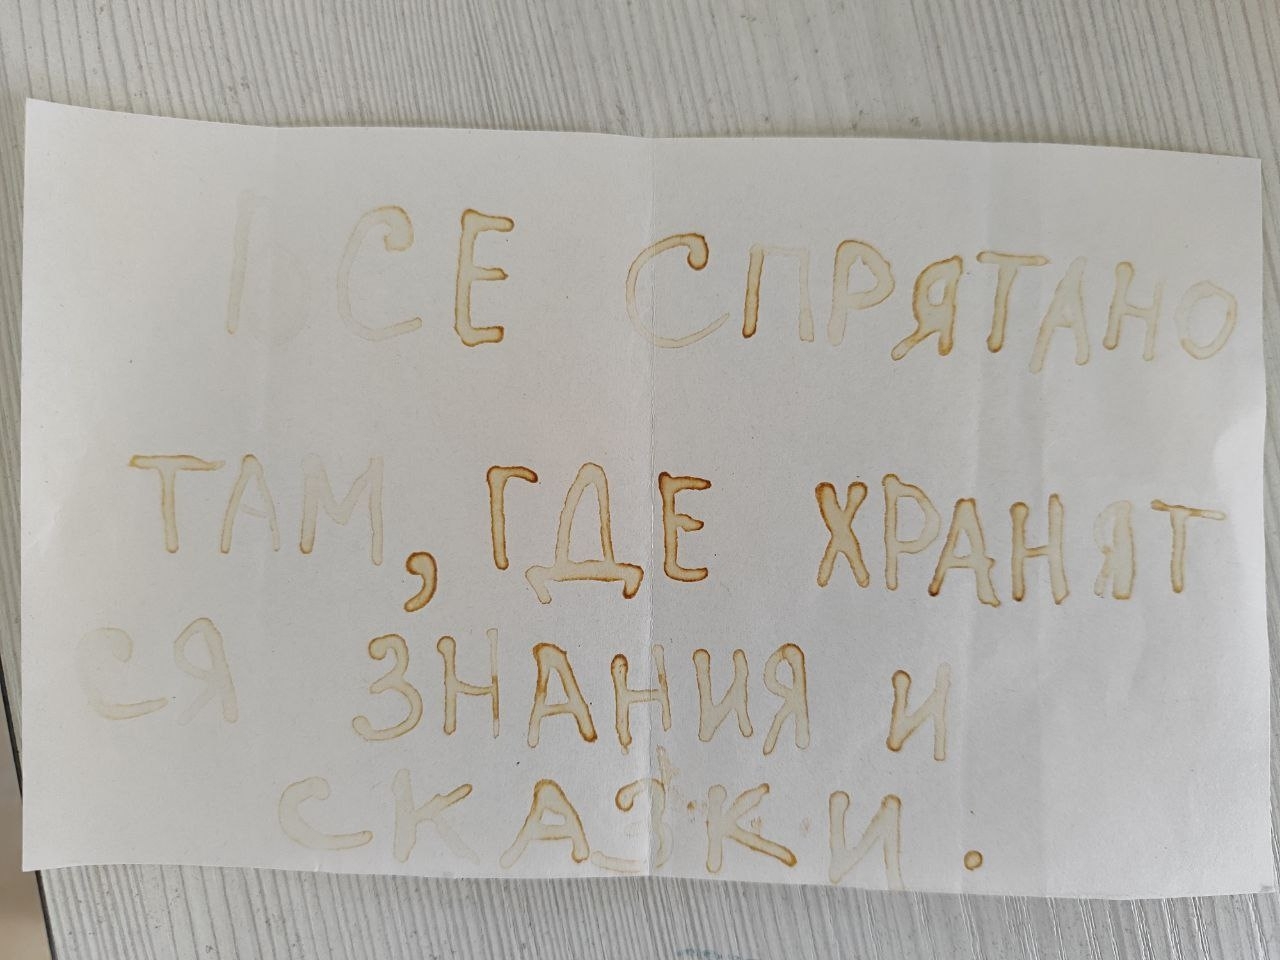 ВСЕ СПРЯТАНО
ТАМ, ГДЕ ХРАНЯТ
СЯ ЗНАНИЯ И
СКАЗКИ.